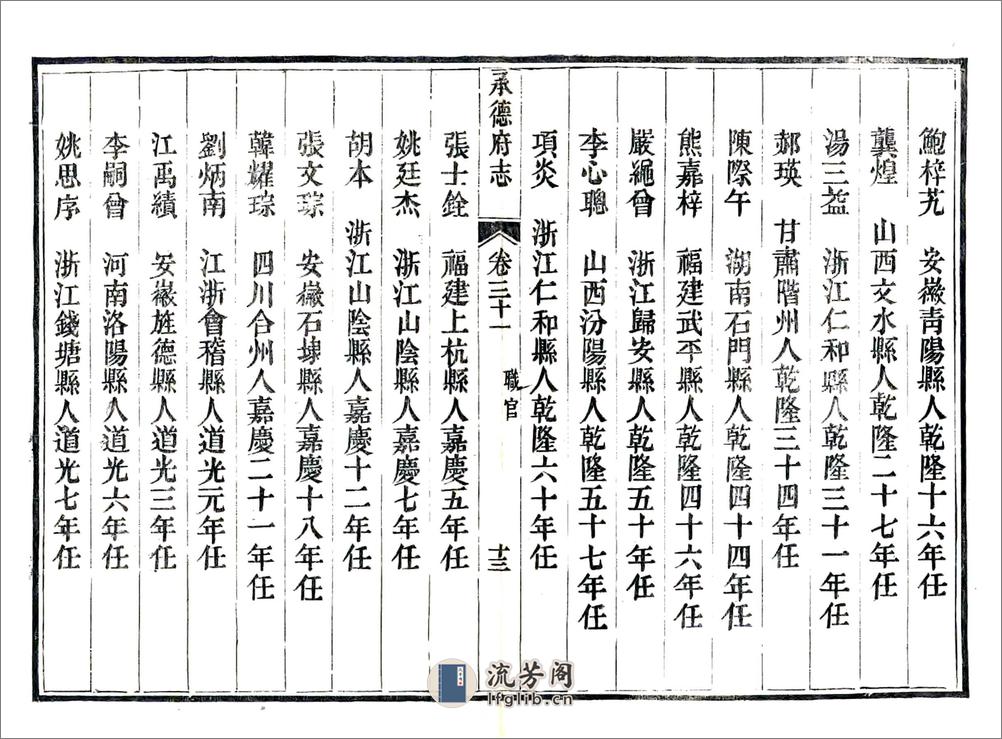 鮑梓艽 安徽靑陽縣人乾隆十六年任
龔煌 山西文水縣人乾隆二十七年任
湯三益 浙江仁和縣人乾隆三十一年任
郝瑛 甘肅階州人乾隆三十四年任
陳際午 湖南石門縣人乾隆四十四年任
熊嘉梓 福建武平縣人乾隆四十六年任
嚴繩曾 浙江歸安縣人乾隆五十年任
李心聰 山西汾陽縣人乾隆五十七年任
項炎 浙江仁和縣人乾隆六十年任
承德府志 卷三十一 職官 十三
張士銓 福建上杭縣人嘉慶五年任
姚廷杰 浙江山陰縣人嘉慶七年任
胡本 浙江山陰縣人嘉慶十二年任
張文琮 安徽石埭縣人嘉慶十八年任
韓耀琮 四川合州人嘉慶二十一年任
劉炳南 江浙會稽縣人道光元年任
江禹績 安徽旌德縣人道光三年任
李嗣曾 河南洛陽縣人道光六年任
姚思序 浙江錢塘縣人道光七年任
流芳阁
lfglib.cn